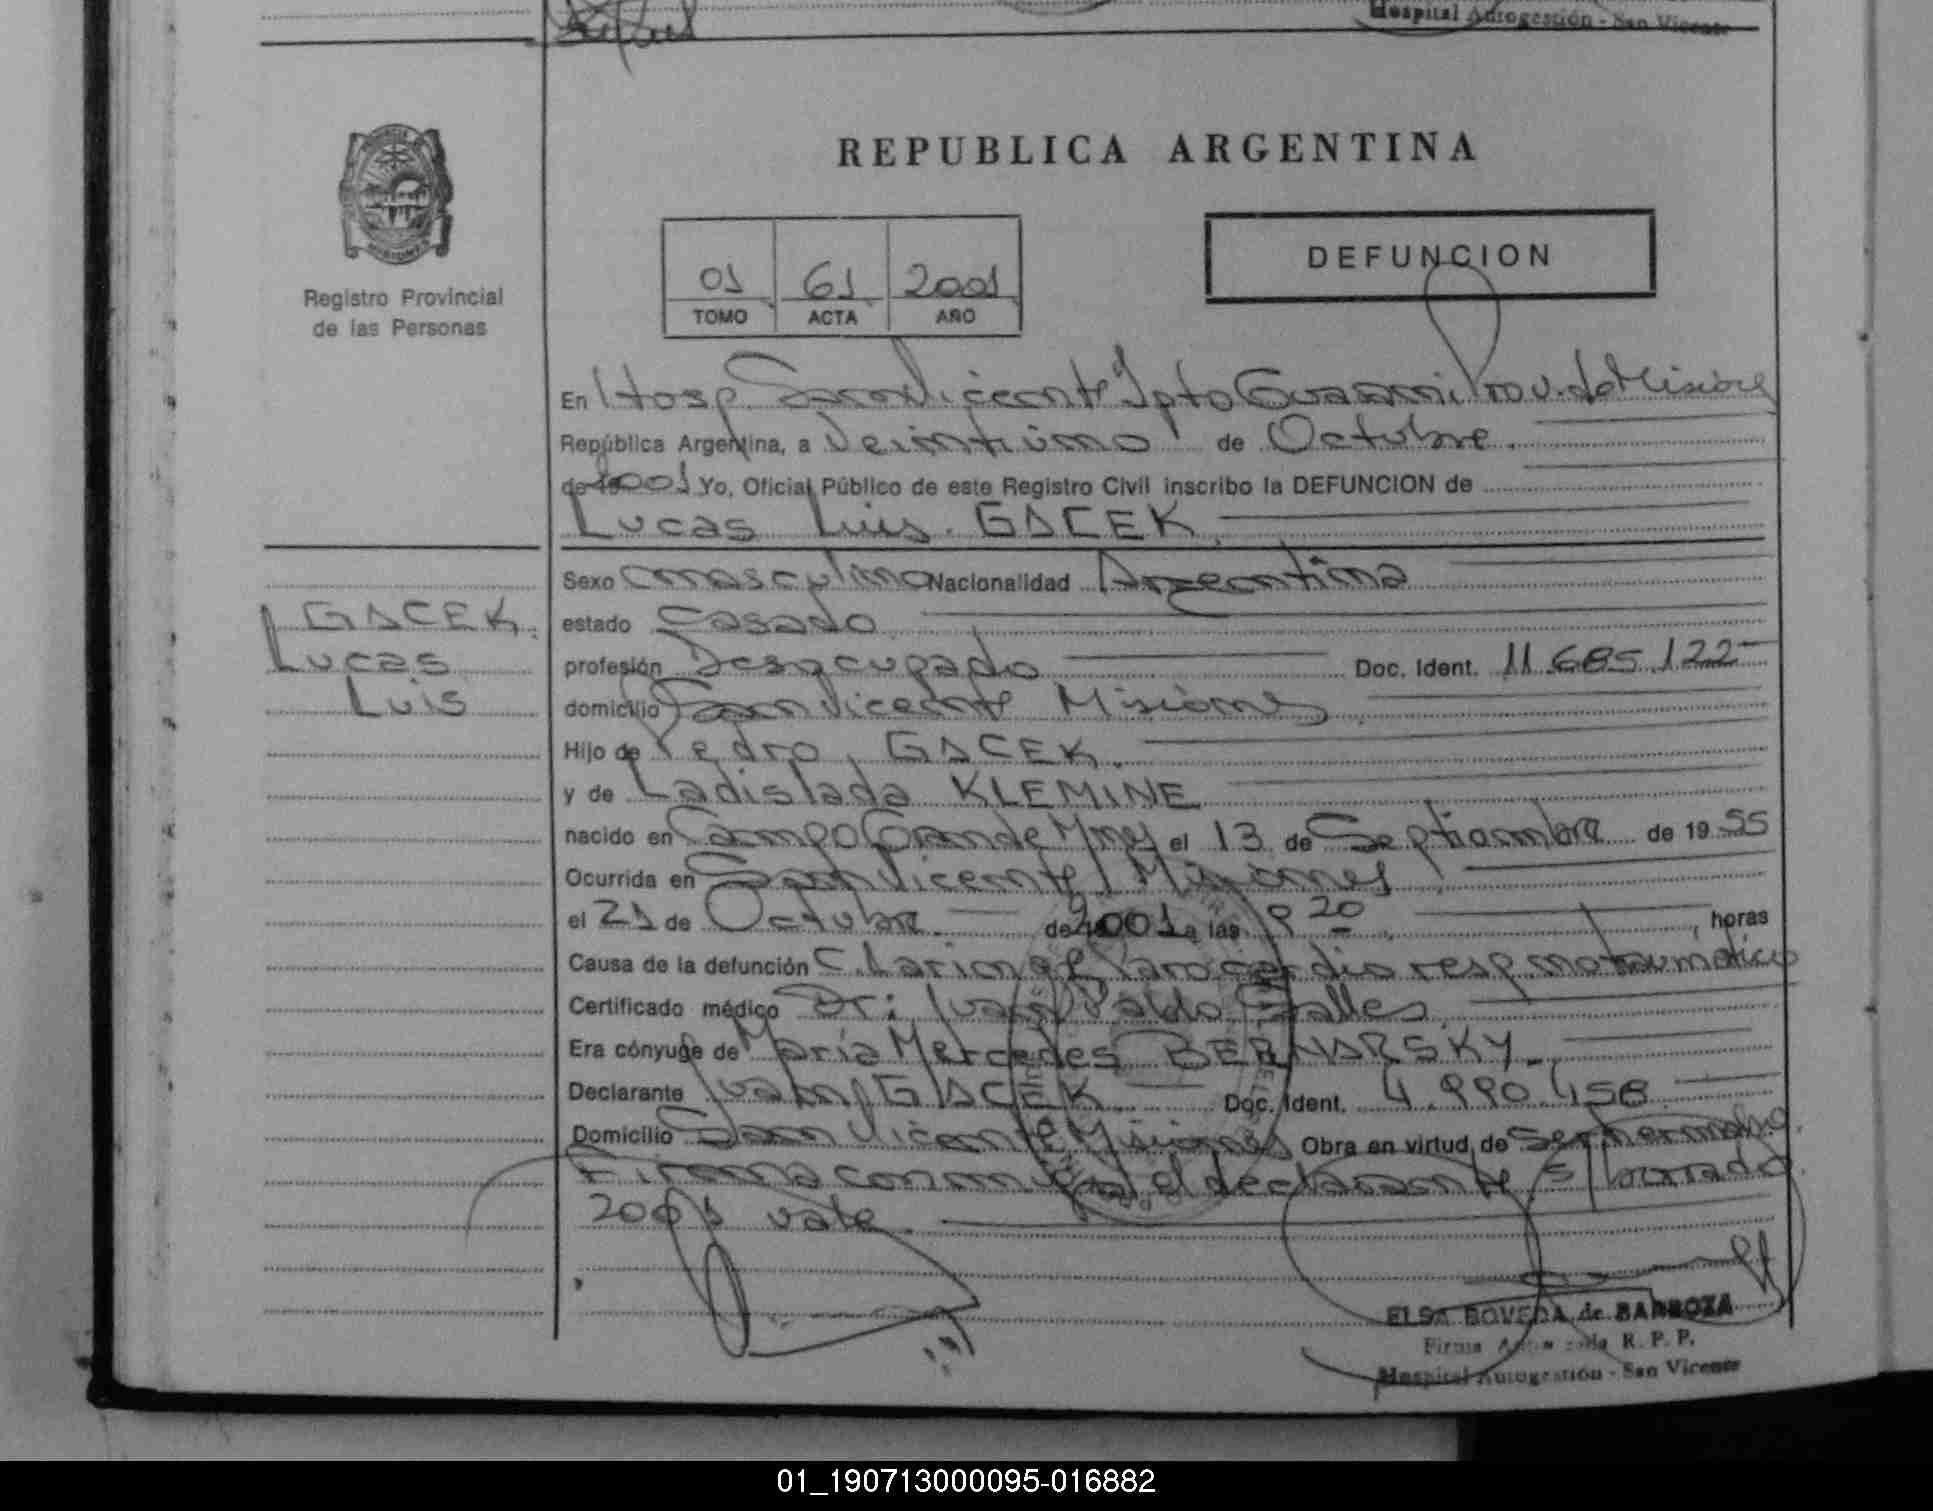 Hospital Autogestión - San Vicente
REPUBLICA ARGENTINA
DEFUNCION
01 61 2001
TOMO ACTA AÑO
Registro Provincial
de las Personas
En Hosp San Vicente Dpto Guarani Prov. de Misiones
República Argentina, a Veintiuno de Octubre
de 2001 Yo, Oficial Público de este Registro Civil inscribo la DEFUNCION de
Lucas Luis GACEK
GACEK
Lucas
Luis
Sexo masculino Nacionalidad Argentina
estado Casado
profesión Desocupado Doc. Ident. 11.685.122
domicilio San Vicente Misiones
Hijo de Pedro GACEK
y de Ladislada KLEMINE
nacido en Campo Grande Mnes el 13 de Septiembre de 1955
Ocurrida en San Vicente Misiones
el 21 de Octubre de 2001 a las 20 horas
Causa de la defunción paro cardio resp no traumático
Certificado médico Dr: Ivan Pablo Salles
Era cónyuge de María Mercedes BERNARSKY
Declarante Juan GACEK Doc. Ident. 4.990.458
Domicilio San Vicente Misiones Obra en virtud de Ser hermano
Firma conmigo el declarante s/borrado
2001 vale
ELSA BOVEDA de BARBOZA
Firma R. P. P.
Hospital Autogestión - San Vicente
01_190713000095-016882